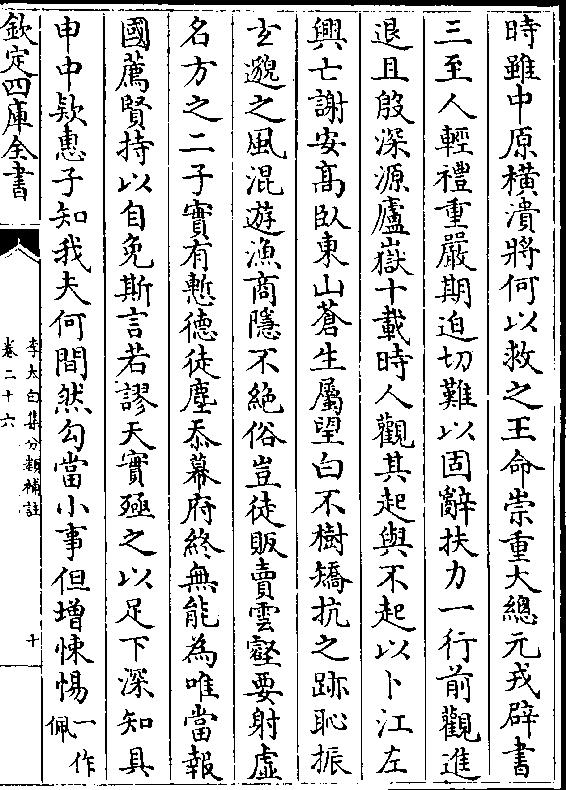 時雖中原橫潰將何以救之王命崇重大總元戎辟書
三至人輕禮重嚴期迫切難以固辭扶力一行前觀進
退且殷深源廬嶽十載時人觀其起與不起以卜江左
興亡謝安髙臥東山蒼生屬望白不樹矯抗之跡恥振
玄邈之風混遊漁商隱不絶俗豈徒販賣雲壑要射虛
名方之二子實有慙德徒塵忝幕府終無能為唯當報
國薦賢持以自免斯言若謬天實殛之以足下深知具
申中欵惠子知我夫何間然勾當小事但增悚惕一作佩
欽定四庫全書
李太白集分類補註
卷二十六
十